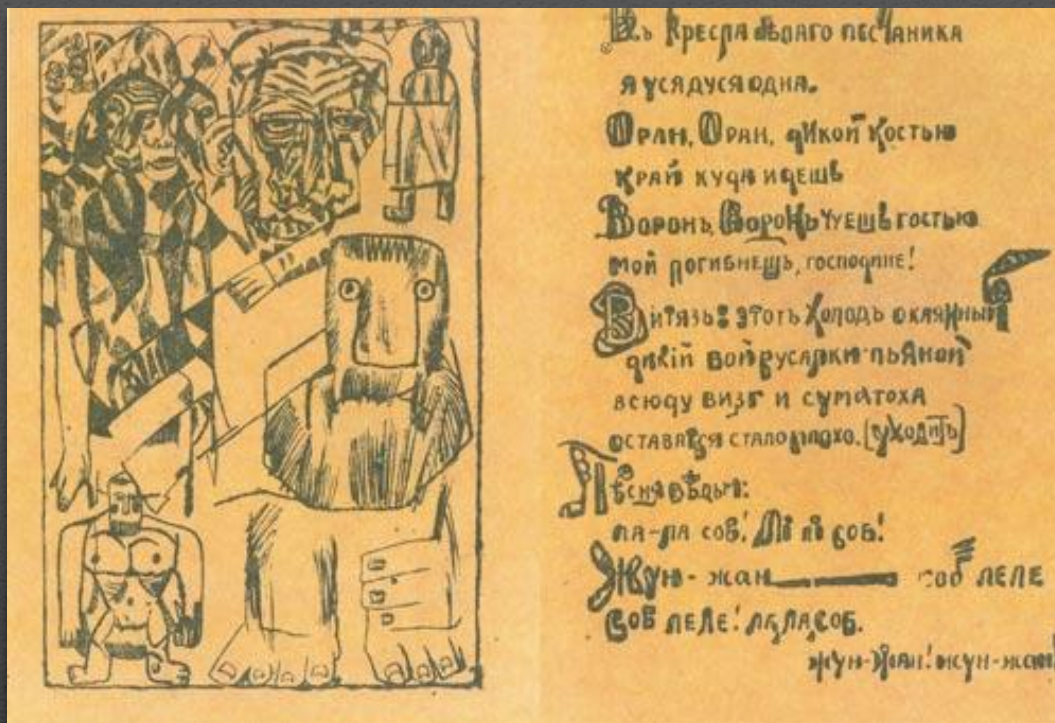 Въ кресла бѣлаго песчаника
я усядуся одна.
Оран, Оран, дикой костью
край куда идешь
Воронъ, Воронъ чуешь гостью
мой погибнешь, господине!
Витязь: этотъ холодъ окаянный
дикій вой русалки пьяной
всюду визг и суматоха
оставатся стало плохо. (уходитъ)
Пѣсня вѣдьм:
ла-ла соб! Ли ли соб!
Жун-жан — соб леле
соб леле! ла, ла, соб.
жун-жан! жун-жан!